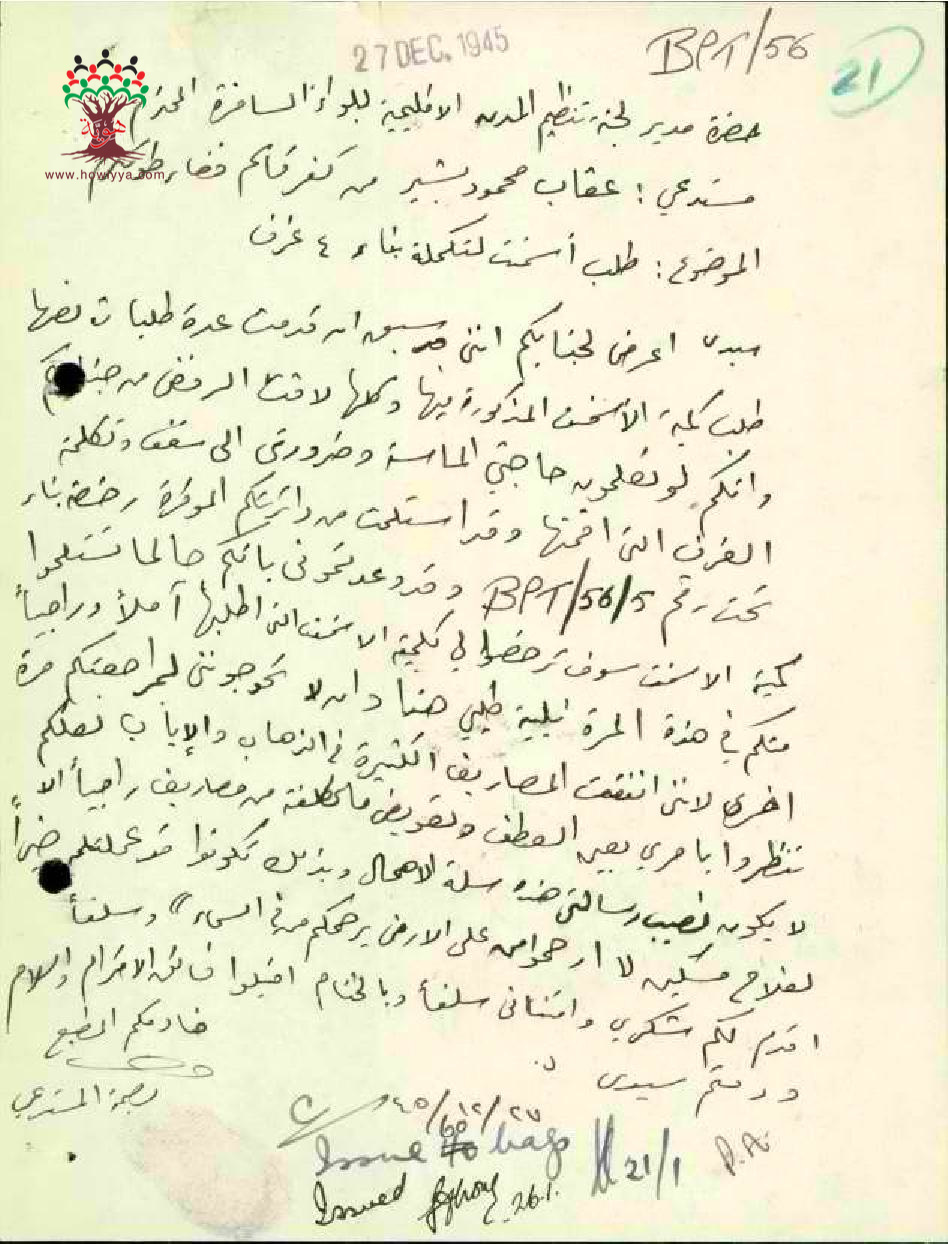 27 DEC. 1945
BPT/56
21
هوية
www.howiyya.com
حضرة مدير لجنة تنظيم المدن الاقليمية للواء السامرة المحترم
مستدعي : عقاب محمود بشير من كفر قاسم قضاء طولكرم
الموضوع : طلب أسمنت لتكملة بناء ٤ غرف
سيدي اعرض لجنابكم انني قد سبق ان قدمت عدة طلبات نصها
طلب كمية الأسمنت المذكورة فيها وكلها لاقت الرفض من جنابكم
وانكم لو تعلمون حاجتي الماسة وضرورتي الى سقف وتكملة
الغرف التي اقمتها وقد استلمت من دائرتكم الموقرة رخصة بناء
تحت رقم BPT/56/5 وقد وعدتموني بانكم حالما تستلموا
كمية الاسمنت سوف ترخصوا لي بكمية الاسمنت التي اطلبها آملاً وراجياً
منكم في هذه المرة تلبية طلبي هذا وان لا تحوجونني لمراجعتكم مرة
اخرى لانني انفقت المصاريف الكثيرة في الذهاب والإياب لعلكم
تنظروا بامري بعين العطف وتعويض ما تكلفته من مصاريف راجياً الا
لا يكون نصيب رسالتي هذه سلة الاهمال وبذلك تكونوا قد عملتم خيراً
لفلاح مسكين لا ارحموا من على الارض يرحمكم من في السماء )) وسلفاً
اقدم لكم شكري وامتناني سلفاً وبالختام اقبلوا فائق الاحترام والسلام
ودمتم سيدي
خادمكم المطيع
بصمة المستدعي
٢٧/١٢/٤٥
Issue 60 bags
21/1
P.A.
Issued
26.1.